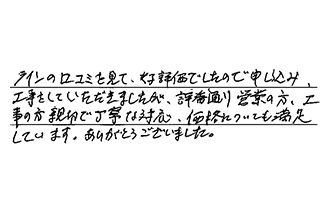 ラインの口コミを見て、大好評価でしたので申し込み、
工事をしていただきましたが、評番通り営業の方、工
事の方親切で丁寧な対応、価格についても満足
しています。ありがとうございました。